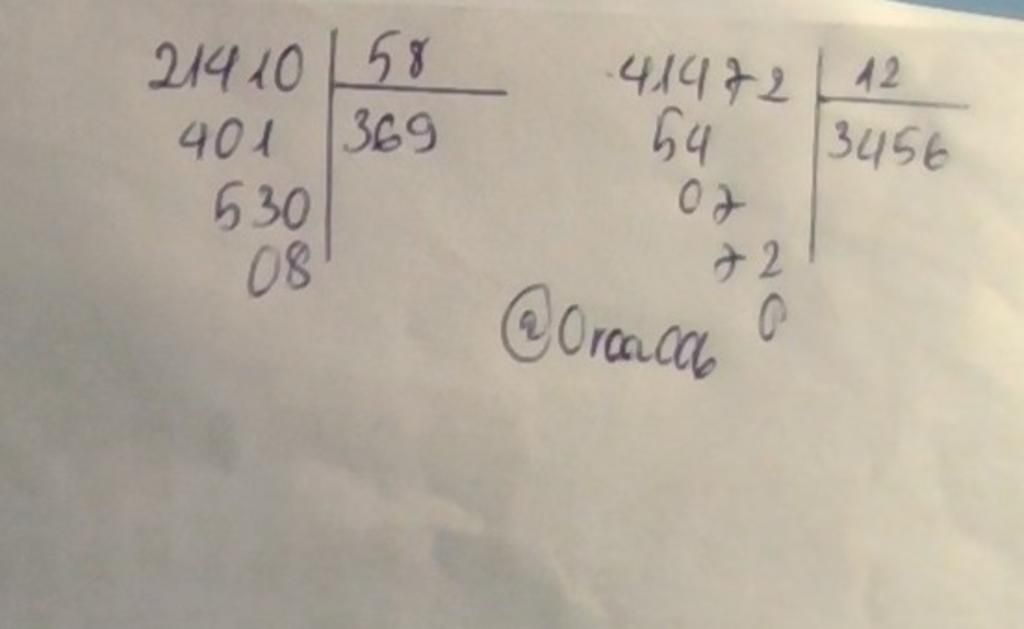 21410 58
401 369
530
08
41472 12
54 3456
07
72
0